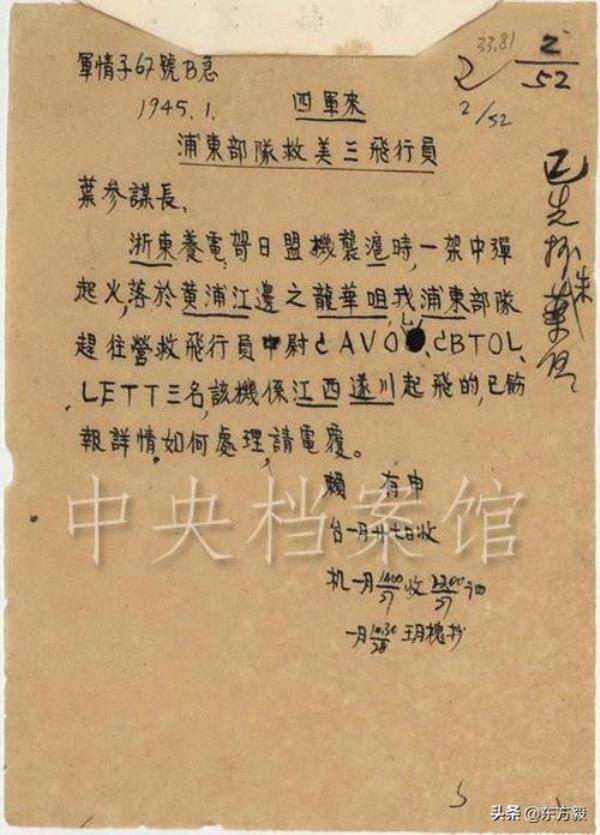 33.81
2
52
2/52
軍情子67號B急
1945.1.
四軍來
浦東部隊救美三飛行員
葉參謀長、
浙東養電:哿日盟機襲滬時,一架中彈
起火,落於黄浦江邊之龍華咀,我浦東部隊
趕往營救飛行員中尉 AVO
LETT三名,該機係江西遂川起飛的,已飭
報詳情.如何處理,請電覆。
賴 有申
台一月廿七日收
机一月1400/27收2200/27
一月1030/28 玥槐抄
已先抄
中央档案馆
头条@东方毅